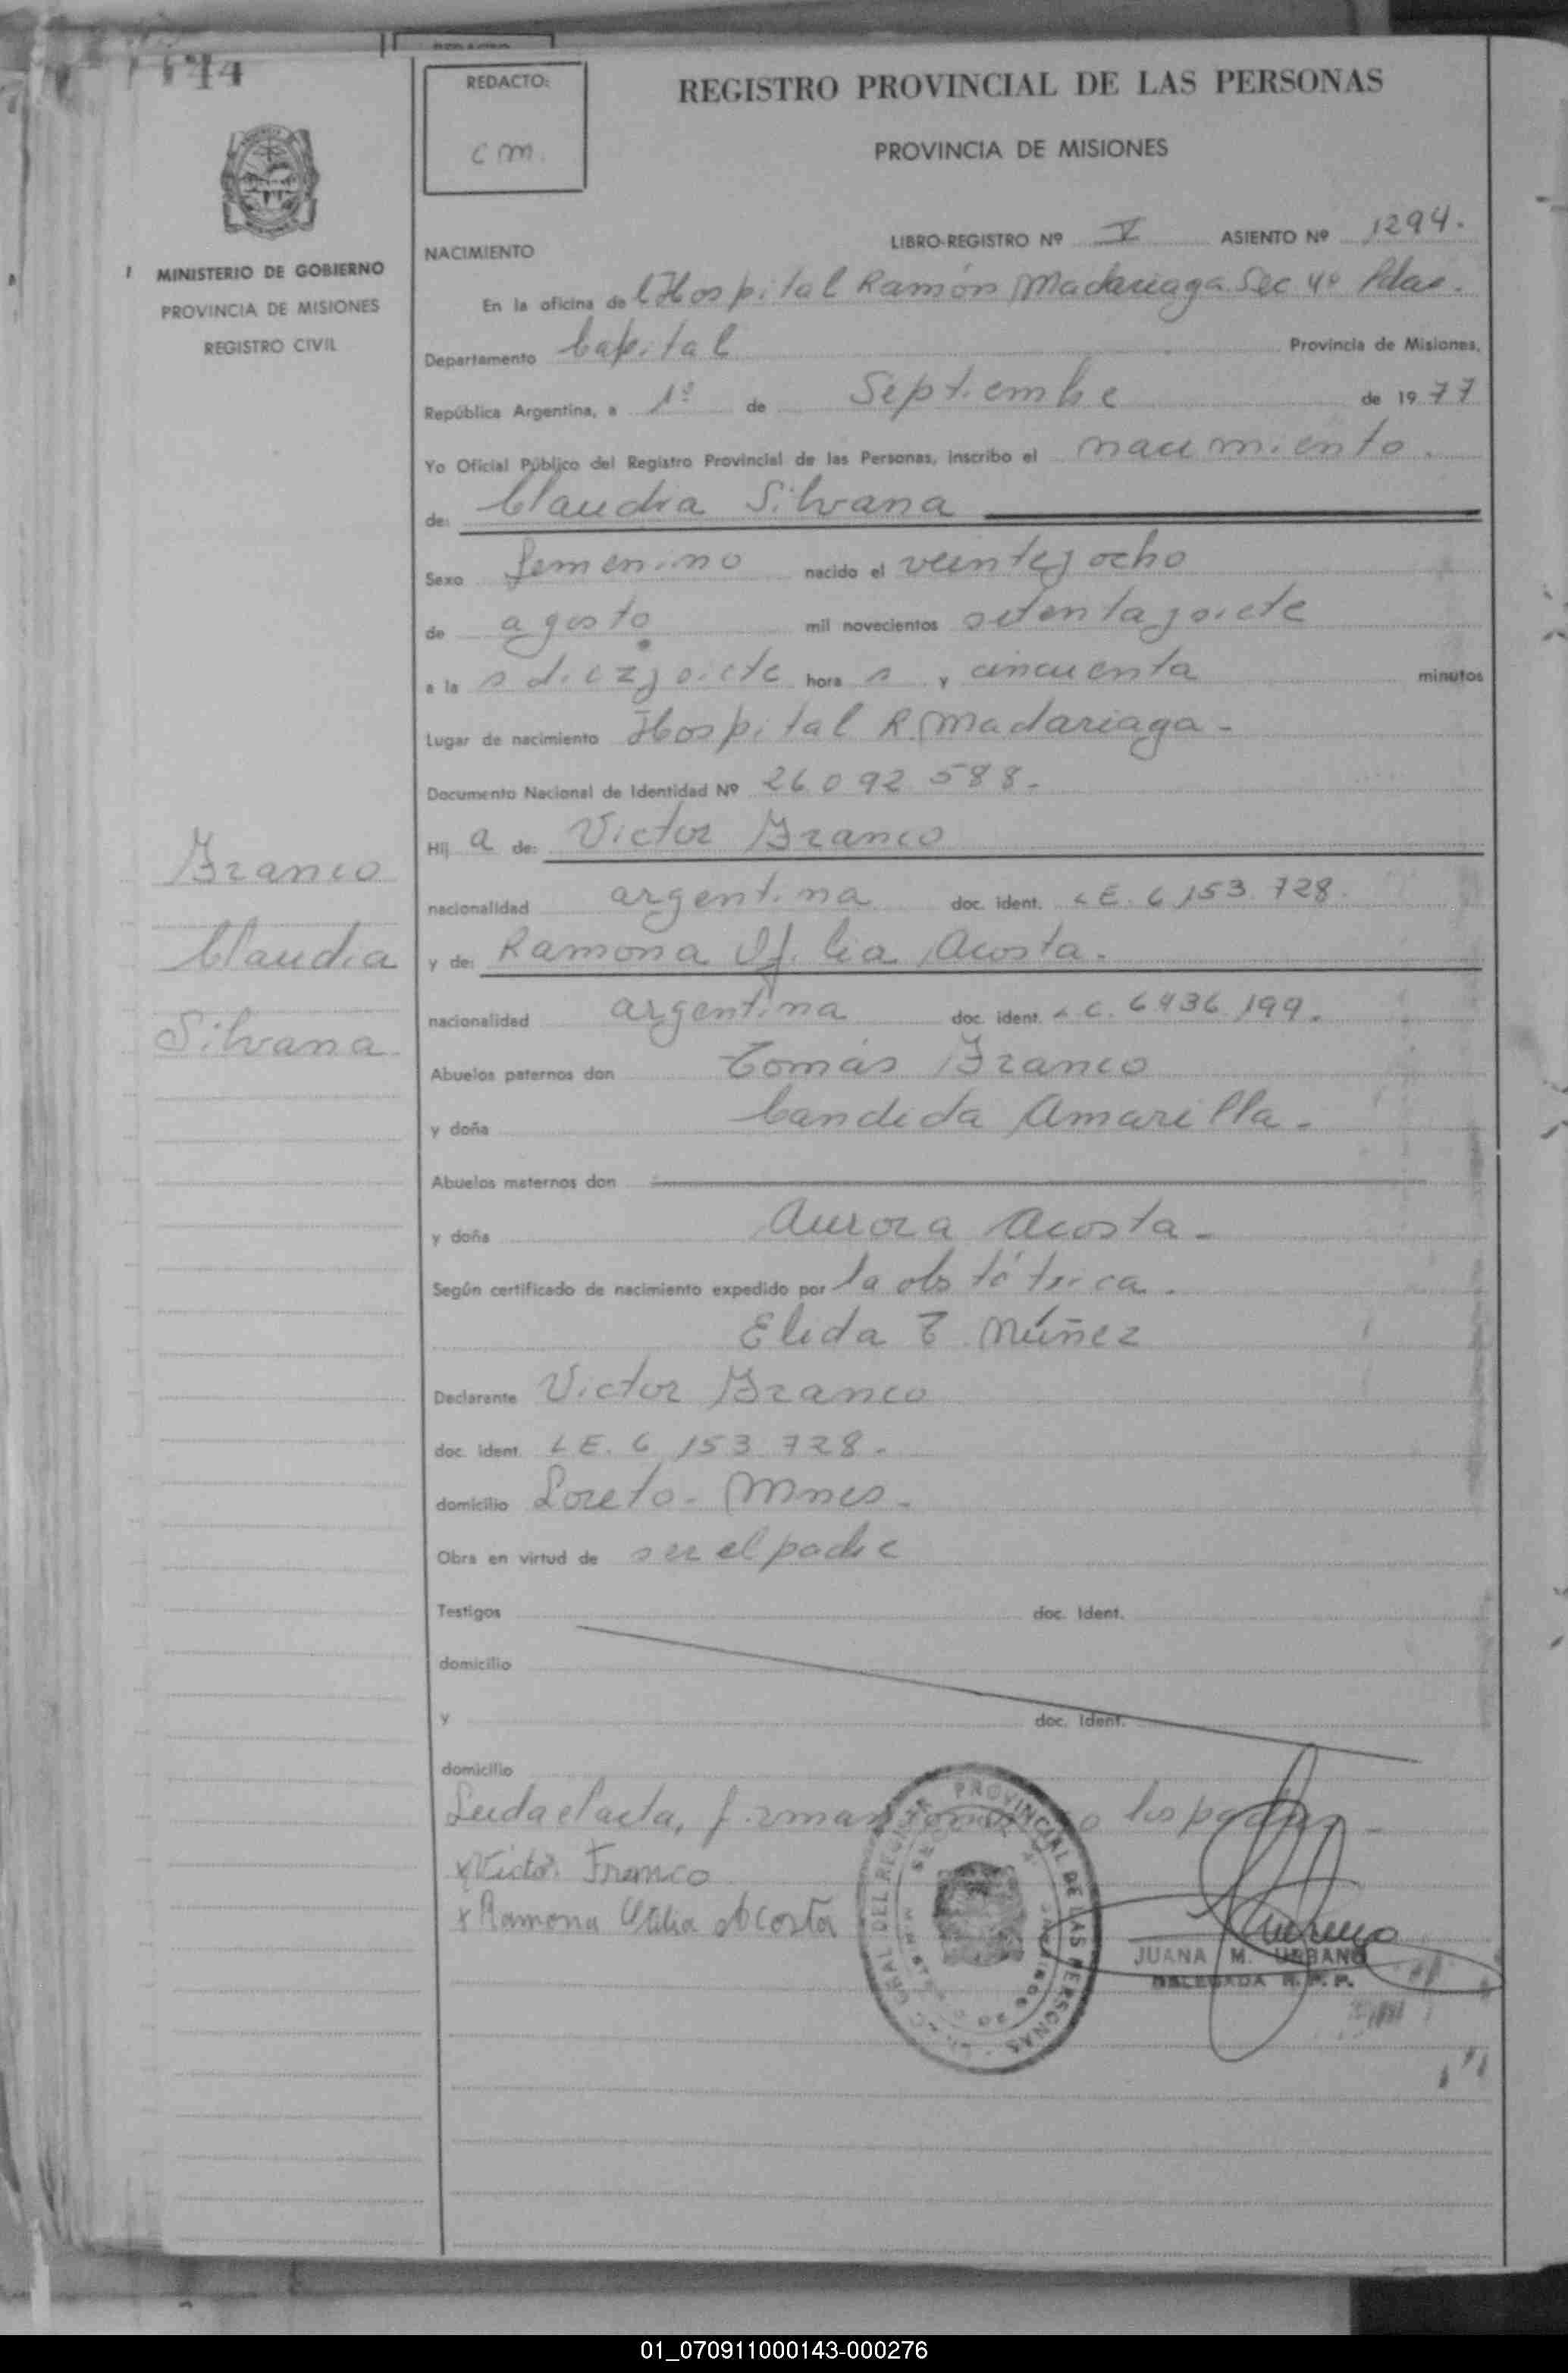 144
REDACTO:
cm.
REGISTRO PROVINCIAL DE LAS PERSONAS
PROVINCIA DE MISIONES
MINISTERIO DE GOBIERNO
PROVINCIA DE MISIONES
REGISTRO CIVIL
NACIMIENTO LIBRO-REGISTRO Nº V ASIENTO Nº 1294.
En la oficina de l Hospital Ramón Madariaga Sec 4º Pdas.
Departamento Capital Provincia de Misiones,
República Argentina, a 1º de Septiembre de 1977
Yo Oficial Público del Registro Provincial de las Personas, inscribo el nacimiento.
de: Claudia Silvana
Sexo femenino nacido el veintey ocho
de agosto mil novecientos setenta y siete
a la s diez y siete hora s y cincuenta minutos
Lugar de nacimiento Hospital R. Madariaga-
Documento Nacional de Identidad Nº 26.092.588-
Hij a de: Victor Franco
nacionalidad argentina doc. ident. LE. 6.153.728.
y de: Ramona Ofilia Acosta.
nacionalidad argentina doc. ident. L C. 6.436.199.
Abuelos paternos don Tomás Franco
y doña Candida Amarilla.
Abuelos maternos don
y doña Aurora Acosta-
Según certificado de nacimiento expedido por la obstétrica.
Elida T. Núñez
Declarante Victor Franco
doc. ident. LE. 6.153.728.
domicilio Loreto- Mnes-
Obra en virtud de ser el padre
Testigos doc. Ident.
domicilio
y doc. Ident.
domicilio
Leida el acta, firman los padres-
x Victor Franco
x Ramona Acosta
Franco
Claudia
Silvana.
PROVINCIAL DE LAS PERSONAS
JUANA M. URBANO
DELEGADA R. P. P.
01_070911000143-000276